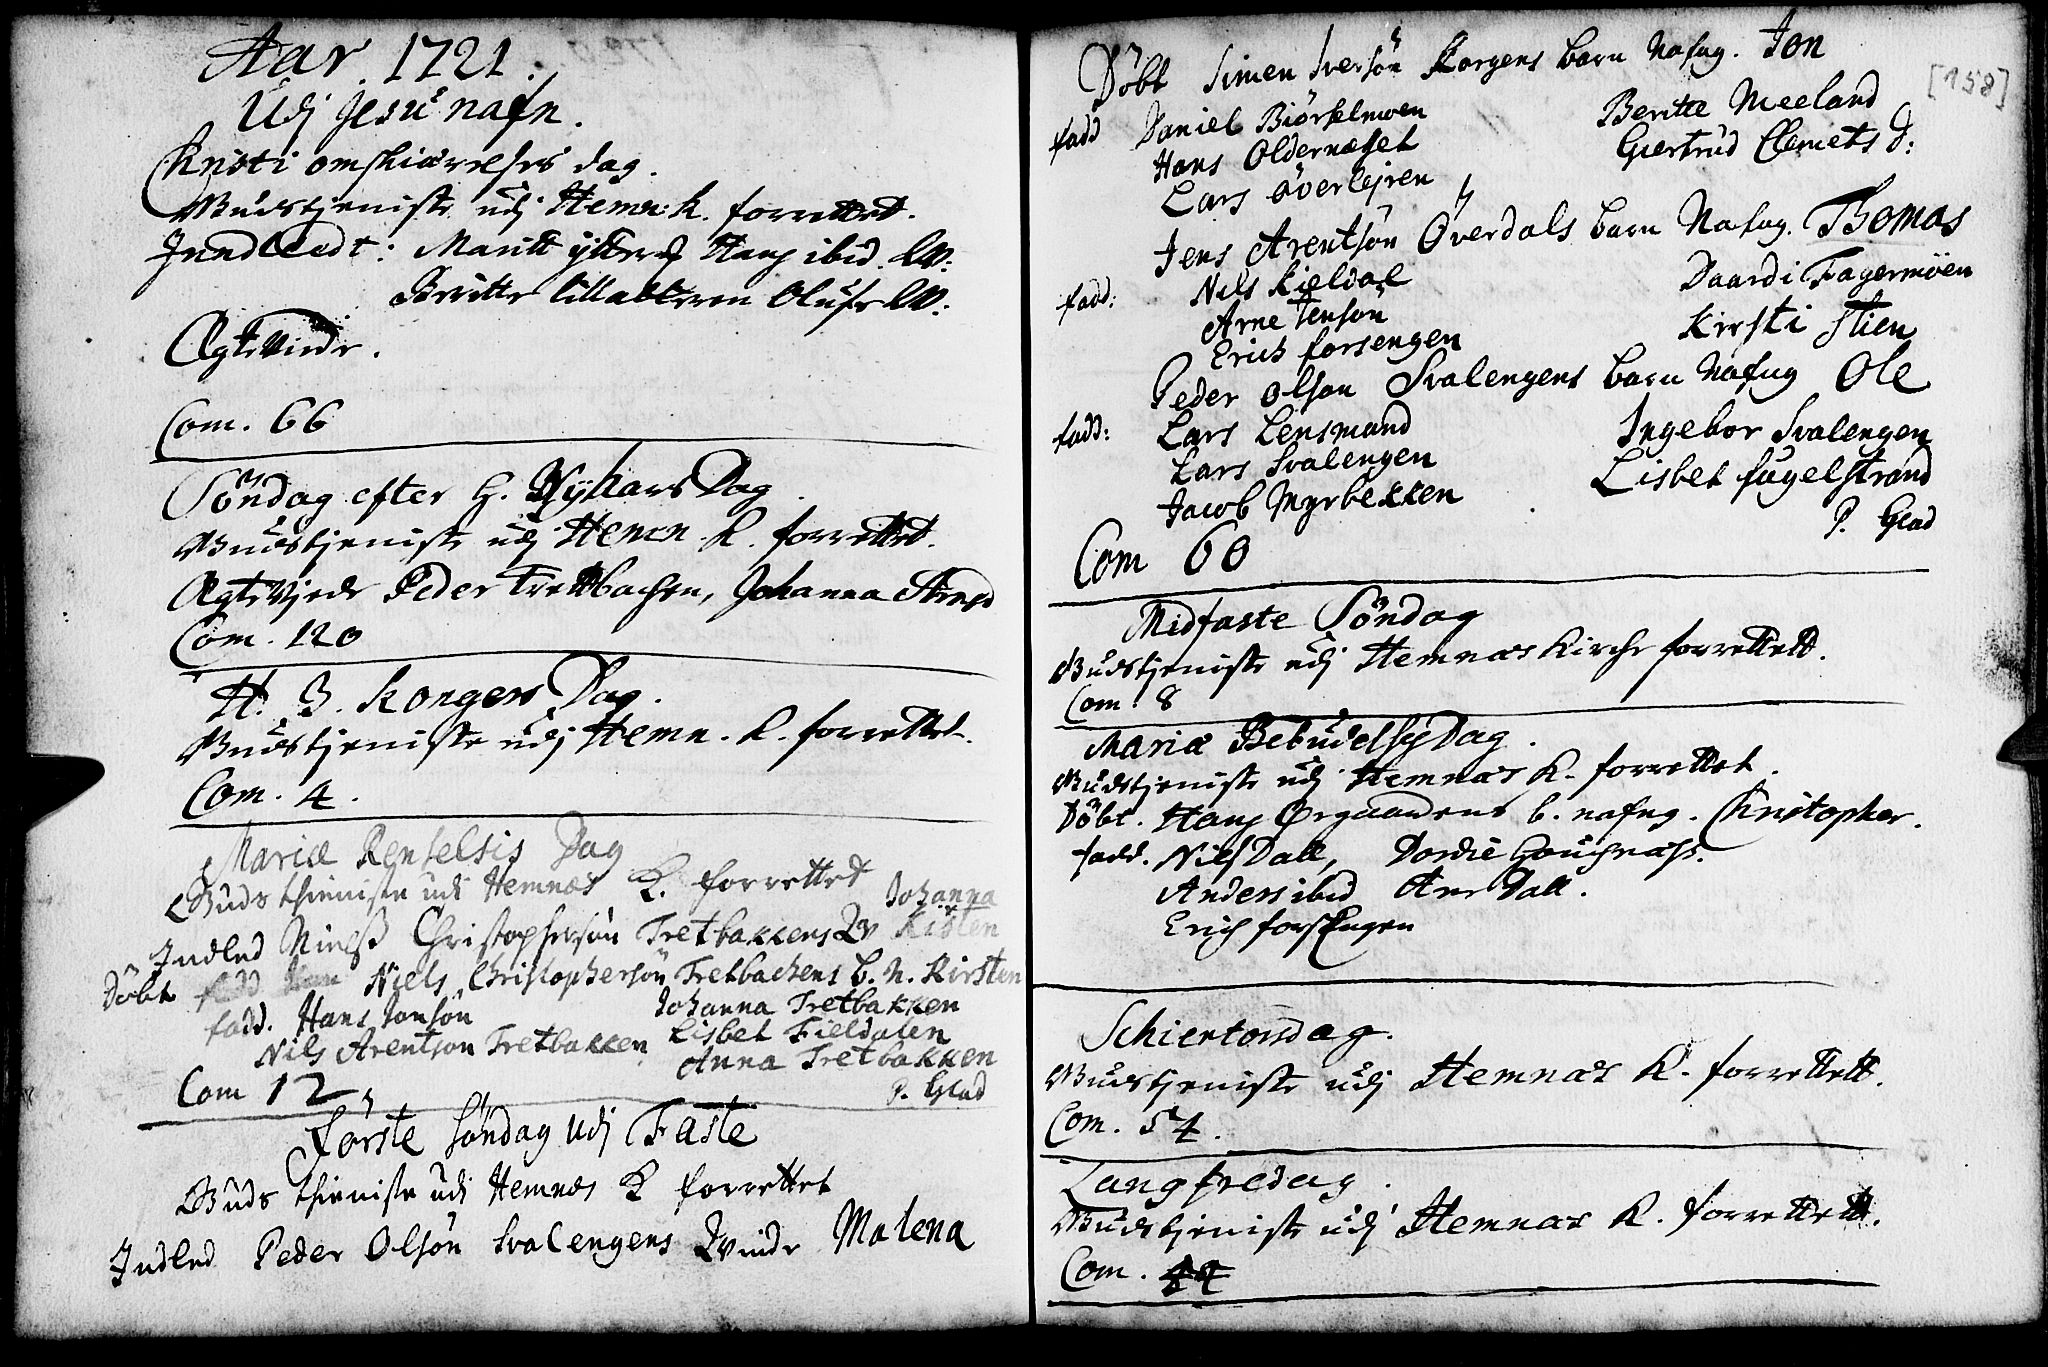 Aar. 1721.
Udj Jesu nafn.
Kristi omskiærelses dag.
Gudstjeniste udj Hemn: K. forrettet.
Inndleedt: Maritt ytter Hans ibid. Qv:
Beritte Lillabterren Olufs Qv:
Ægteviede.
Com. 66
Söndag efter H. Nyhars Dag.
Gudstjeniste udj Hemn. K. forrettet.
Ægtevjede Peder Trettbachen, Johanna
Com. 120
H. 3. Kongers Dag.
Gudstjeniste udj Hemn. K. forrettet.
Com. 4.
Mariæ Renselsis Dag
Guds thieniste udi Hemnæs K. forrettet
Johanna
Indled Nielss Christophersön Tretbakkens Qv Kisten
Döbt Niels Christophersön Tretbachens b. N. Kirsten
fadd. Hans Jonsön Johanna Tretbakken
Nils Arentson Tretbakken Lisbet Fieldalen
Anna Tretbakken
Com 12 P. Glad
Förste söndag udj Faste
Guds thieniste udi Hemnæs K forrettet
Indled Peder Olsön Svalengens Qvinde Malena
[158]
Döbt Simen Iversön Korgens barn Nafng. Jon
fadd Daniel Biörkelmoen Beritte Meeland
Hans Oldernæset Giertrud Clemets d:
Lars överlejren
Jens Arentsön Överdals barn Nafng. Thomas
fadd: Nils Kieldal Daardi Fagermöen
Arne Jensön Kirsti Stien
Erich forsengen
Peder Olson Svalengens barn Nafng Ole
fadd: Lars Lensmand Ingebor Svalengen
Lars Svalengen Lisbet fugelstrand
Jacob Myrbekken
P. Glad
Com 60
Midfaste Söndag
Gudstjeniste udj Hemnæs Kirche forrettett.
Com. 8
Mariæ Bebudelses Dag.
Gudstjeniste udj Hemnæs K. forrettet.
Döbt. Hans Ørgaardens b. nafng. Christopher.
fadd. Nils Dall, Dordie
Anders ibid Ane Dall.
Erich forsEngen
Schiertorsdag.
Gudstjeniste udj Hemnæs K. forrettett.
Com. 54.
Langfredag.
Gudstjeniste udj Hemnæs K. forrettett.
Com.